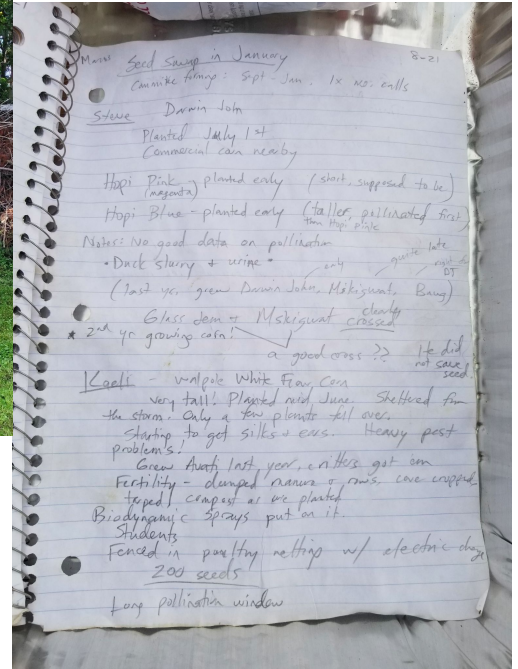 Maine Seed Swap in January 8-21
Committee forming: Sept - Jan. 1x mo. calls
Steve Darwin John
Planted July 1st
Commercial corn nearby
Hopi Pink - planted early (short, supposed to be)
(magenta)
Hopi Blue - planted early (taller, pollinated first)
than Hopi pink
Notes: No good data on pollination
• Duck slurry + urine •
early quite late
DJ
(last yr. grew Darwin John, Mskigwat, )
Glass Gem + Mskigwat clearly crossed
* 2nd yr growing corn!
a good cross ?? He did not save seed.
- Walpole White Flour Corn
very tall! Planted mid June. Sheltered from
the storm. Only a few plants fell over.
Starting to get silks + ears. Heavy pest
problems!
Grew last year, critters got 'em
Fertility - dumped manure rows, cover cropped
tarped, compost as we planted
Biodynamic Sprays put on it.
Students
Fenced in poultry netting w/ electric charge
200 seeds
Long pollination window